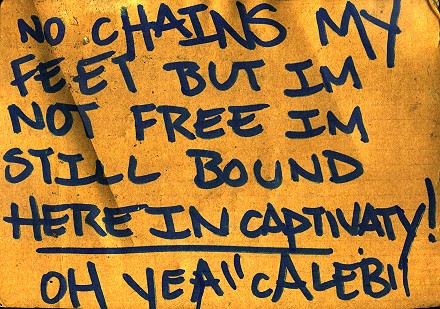 NO CHAINS MY
FEET BUT IM
NOT FREE IM
STILL BOUND
HERE IN CAPTIVATY!
OH YEA" CALEB"